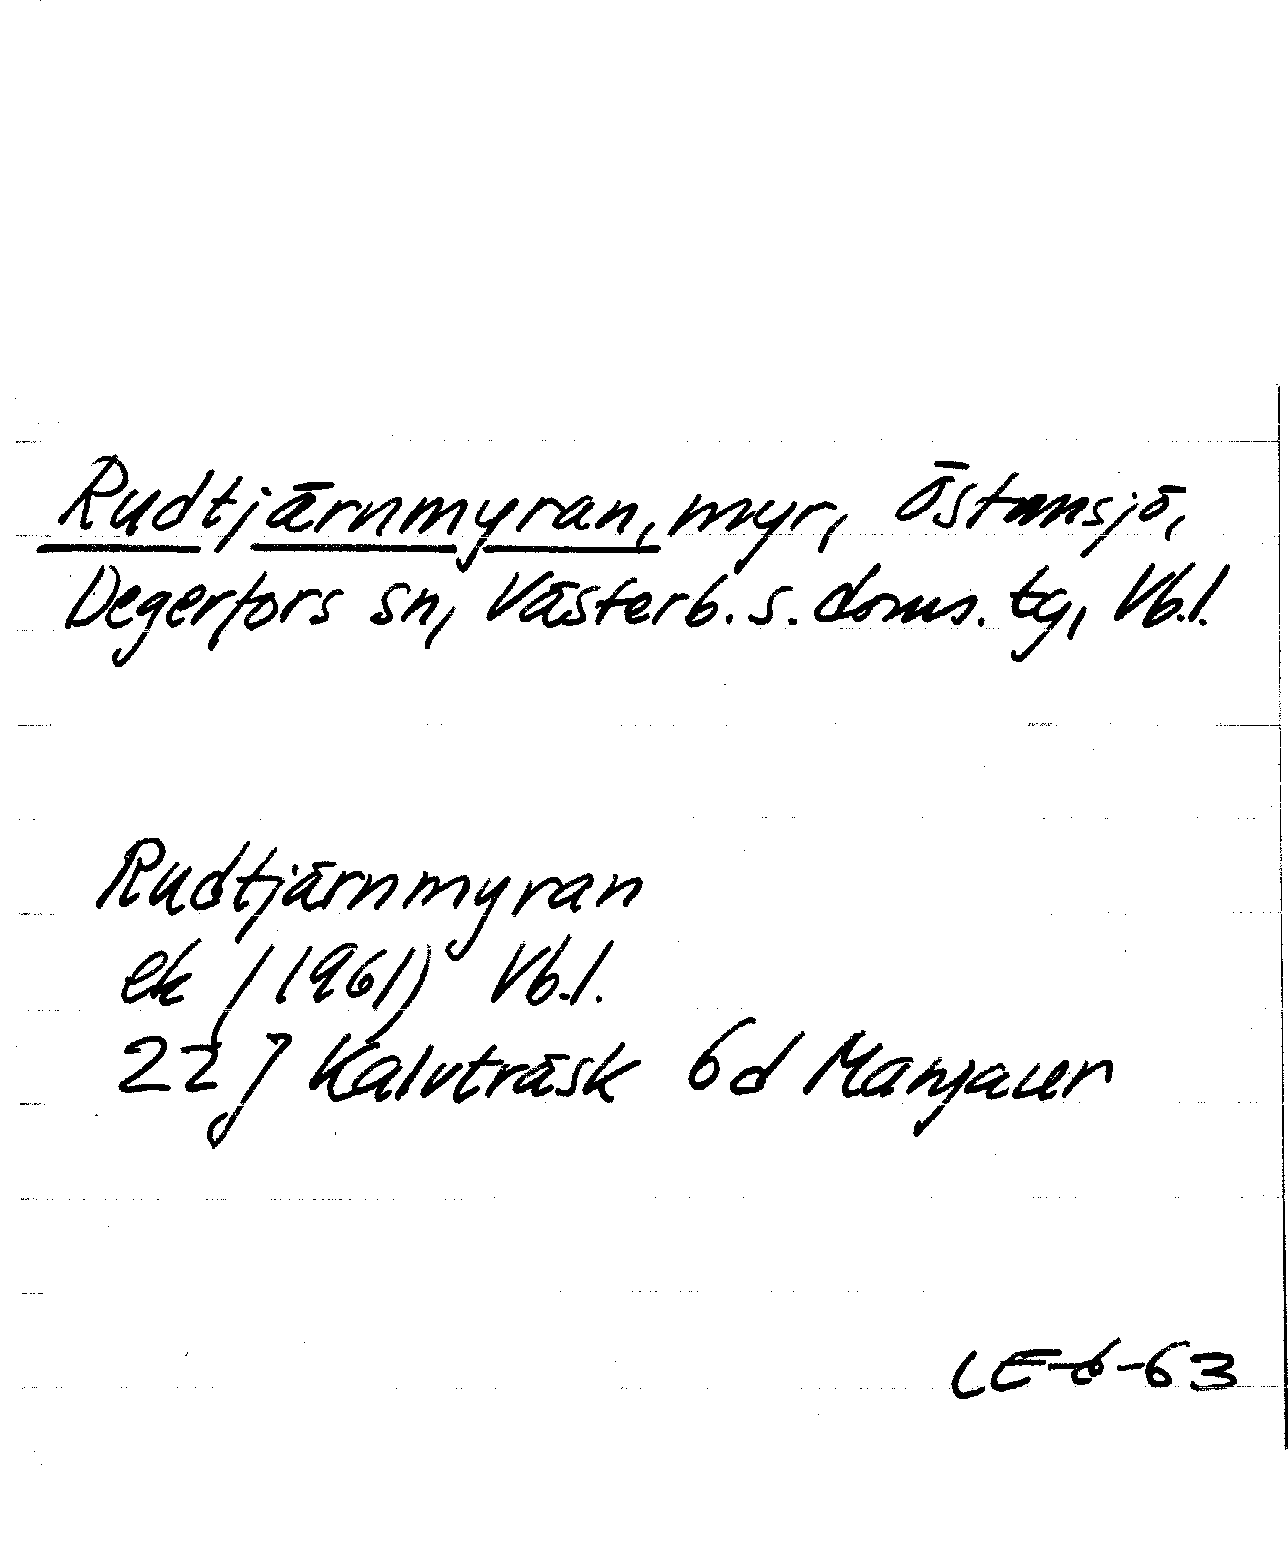 Rudtjärnmyran, myr, Östansjö,
Degerfors sn, Västerb. s. doms. tg, Vb.l.
Rudtjärnmyran
ek (1961) Vb.l.
22 J Kalvträsk 6d Manjaur
LE-6-63